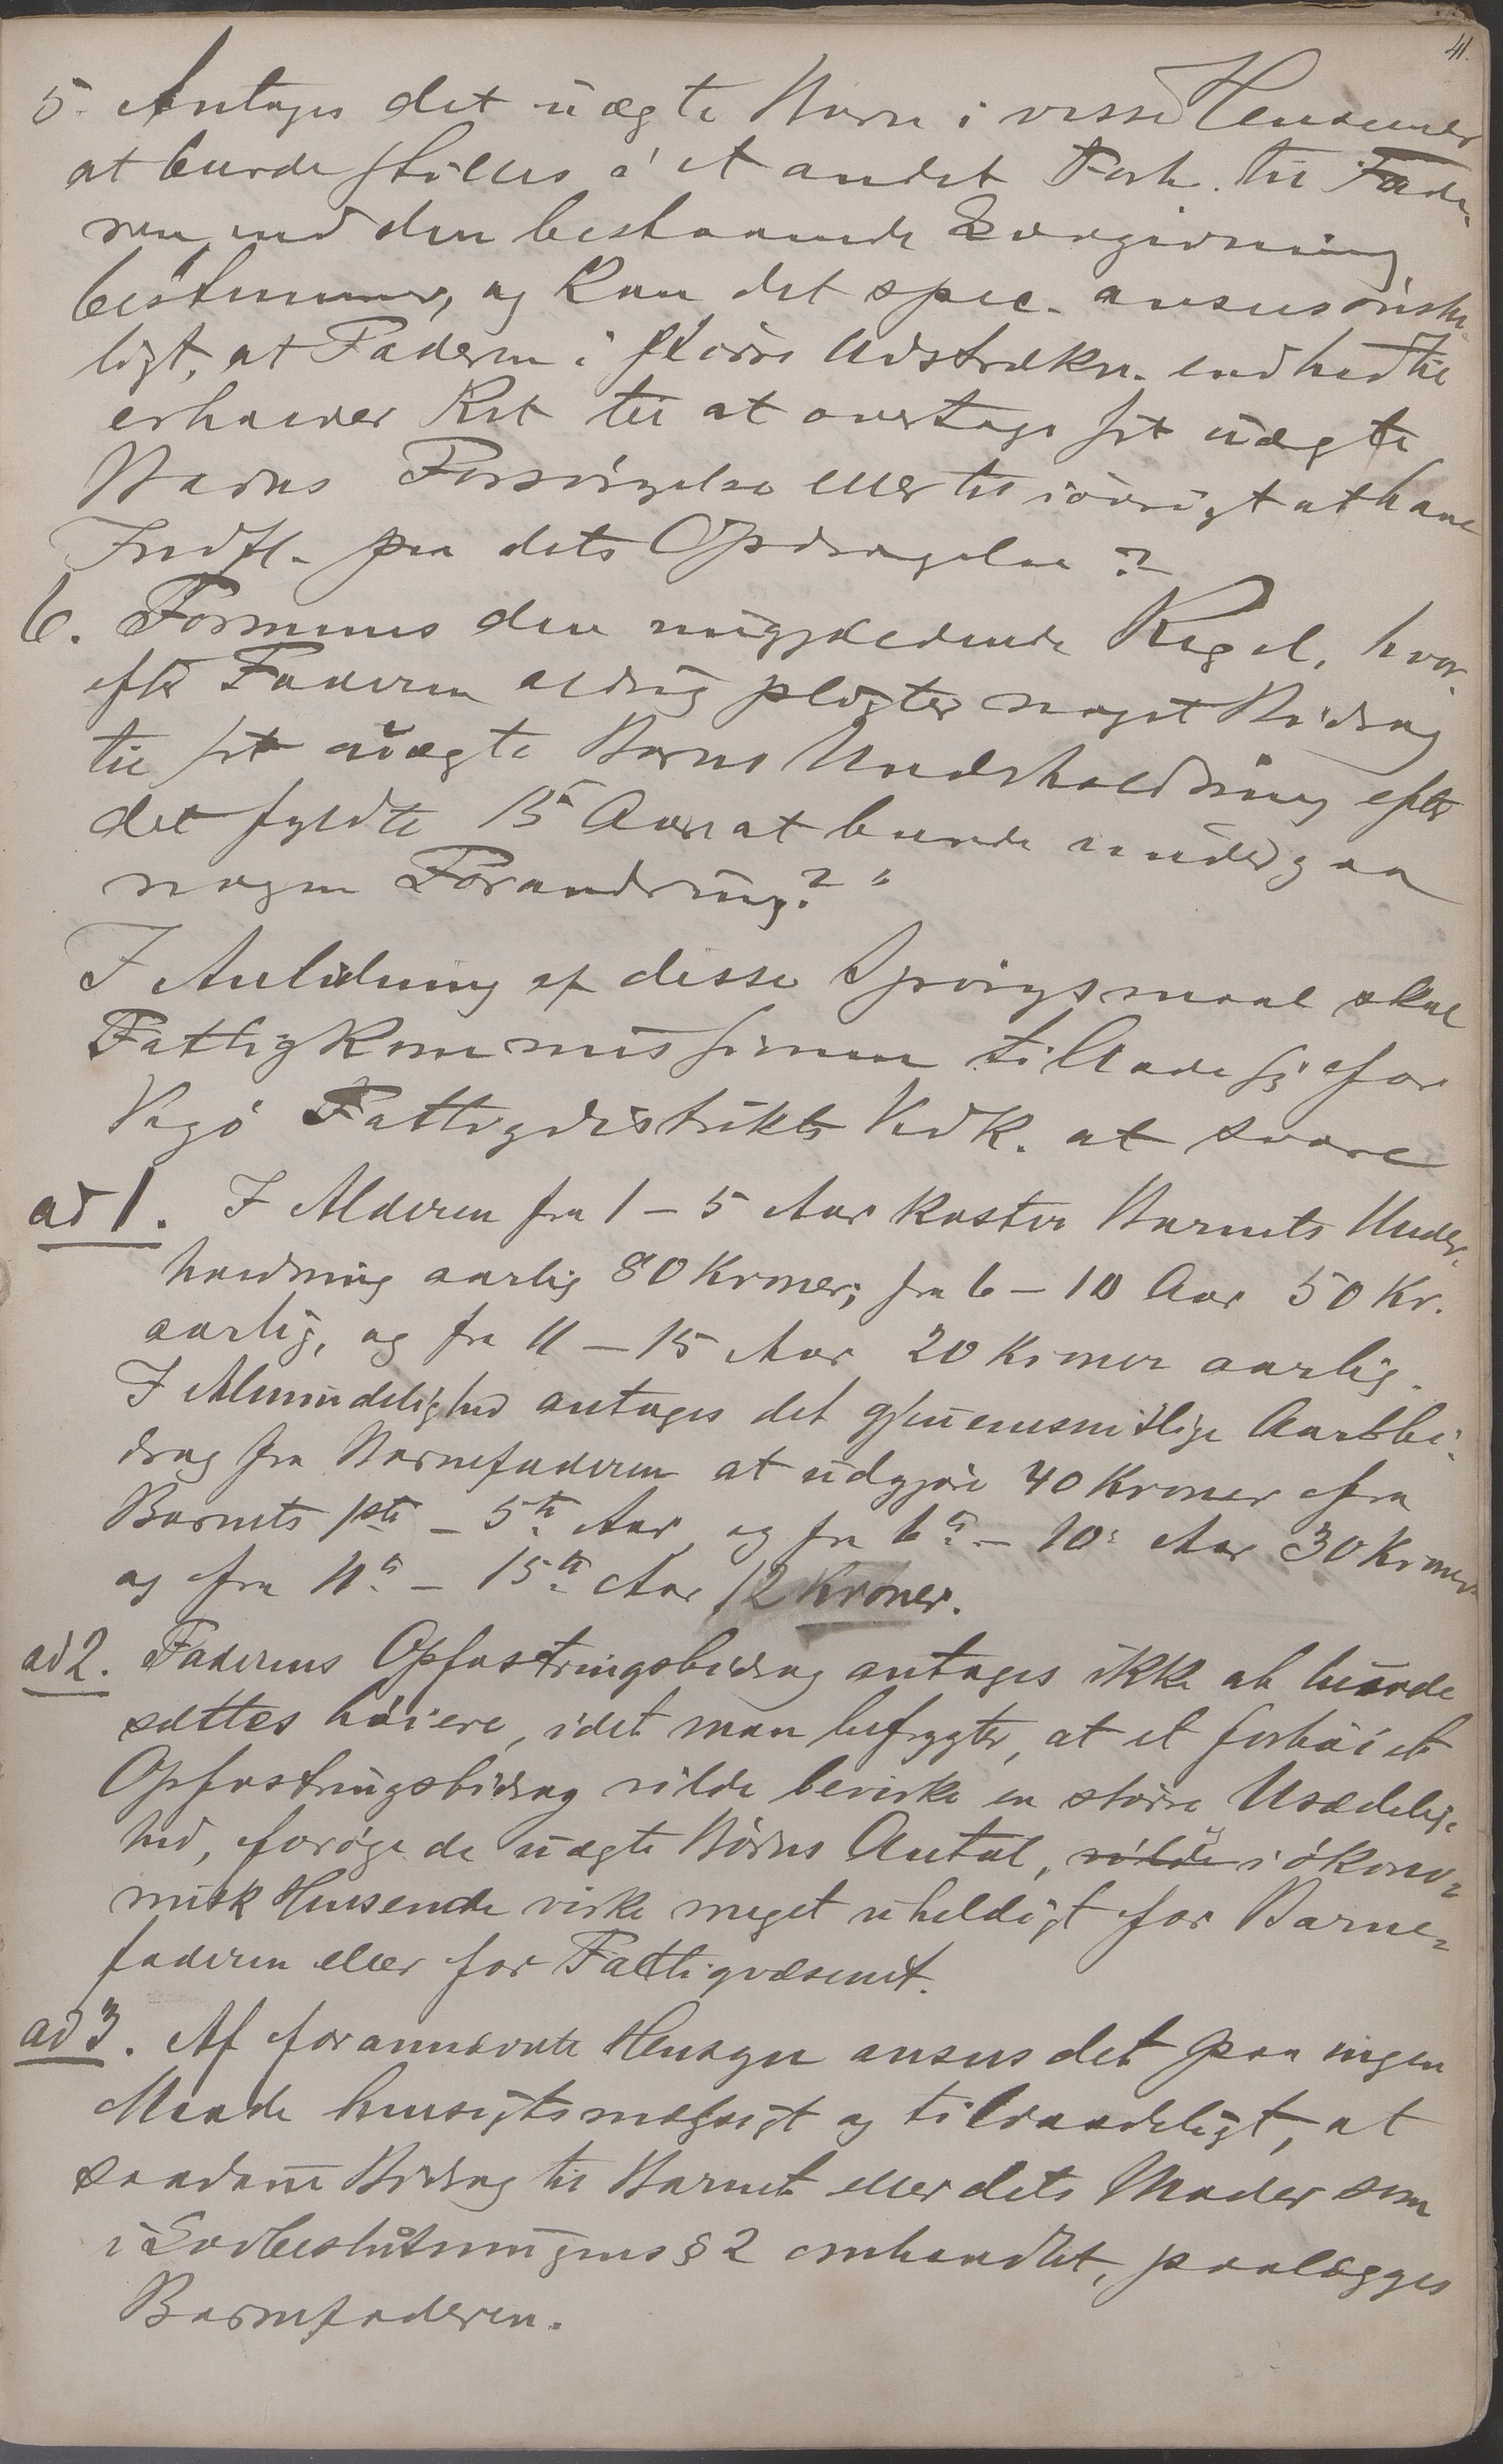 41.
5. Antages det uægte Barn i visse Henseender
at burde stilles i et andet Forh. til Fade-
ren, end den bestaaende Lovgivning
bestemmer, og kan det spec. ansees ønske-
ligt, at Faderen i større Udstrækn. end hidtil
erholder Ret til at overtage sit uægte
Barns Forsørgelse eller til iøvrigt at have
Indfl. paa dets Opdragelse?
6. Formenes den nugjældende Regel, hvor-
efter Faderen aldrig pligter noget Bidrag
til sit uægte Barns Underholdning efter
det fyldte 15de Aar at burde undergaa
nogen Forandring?"
I Anledning af disse Spörgsmaal skal
Fattigkommissionen tillade sig for
Vegø Fattigdistrikts Vedk. at svare
ad 1. I Alderen fra 1 – 5 Aar koster Barnets Under-
holdning aarlig 80 Kroner; fra 6 – 10 Aar 50 Kr.
aarlig, og fra 11 – 15 Aar 20 Kroner aarlig.
I Almindelighed antages det gjennemsnitlige Aarsbi-
drag fra Barnefaderen at udgjøre 40 Kroner fra
Barnets 1ste – 5te Aar, og fra 6te – 10de Aar 30 Kroner
og fra 11te – 15te Aar 12 Kroner.
ad 2. Faderens Opfostringsbidrag antages ikke at burde
sættes høiere, idet man befrygter, at et forhøiet
Opfostringsbidrag vilde bevirke en større Usædelig-
hed, forøge de uægte Børns Antal, vilde i økono-
misk Henseende virke meget uheldigt for Barne-
faderen eller for Fattigvæsenet.
ad 3. Af forannævnte Hensyn ansees det paa ingen
Maade hensigtsmæssigt og tilraadeligt, at
saadant Bidrag til Barnet eller dets Moder som
i Lovbeslutningens § 2 omhandlet, paalægges
Barnefaderen.